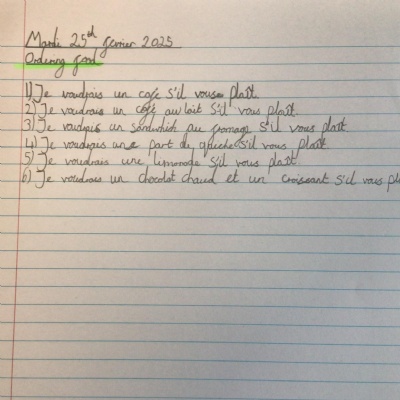 Mardi 25th fevrier 2025
Ordering food
1) Je voudrais un café s'il vous plaît.
2) Je voudrais un café au lait s'il vous plaît.
3) Je voudrais un sandwich au fromage s'il vous plaît
4) Je voudrais une part de quiche s'il vous plaît
5) Je voudrais une limonade s'il vous plaît.
6) Je voudrais un chocolat chaud et un croissant s'il vous pla